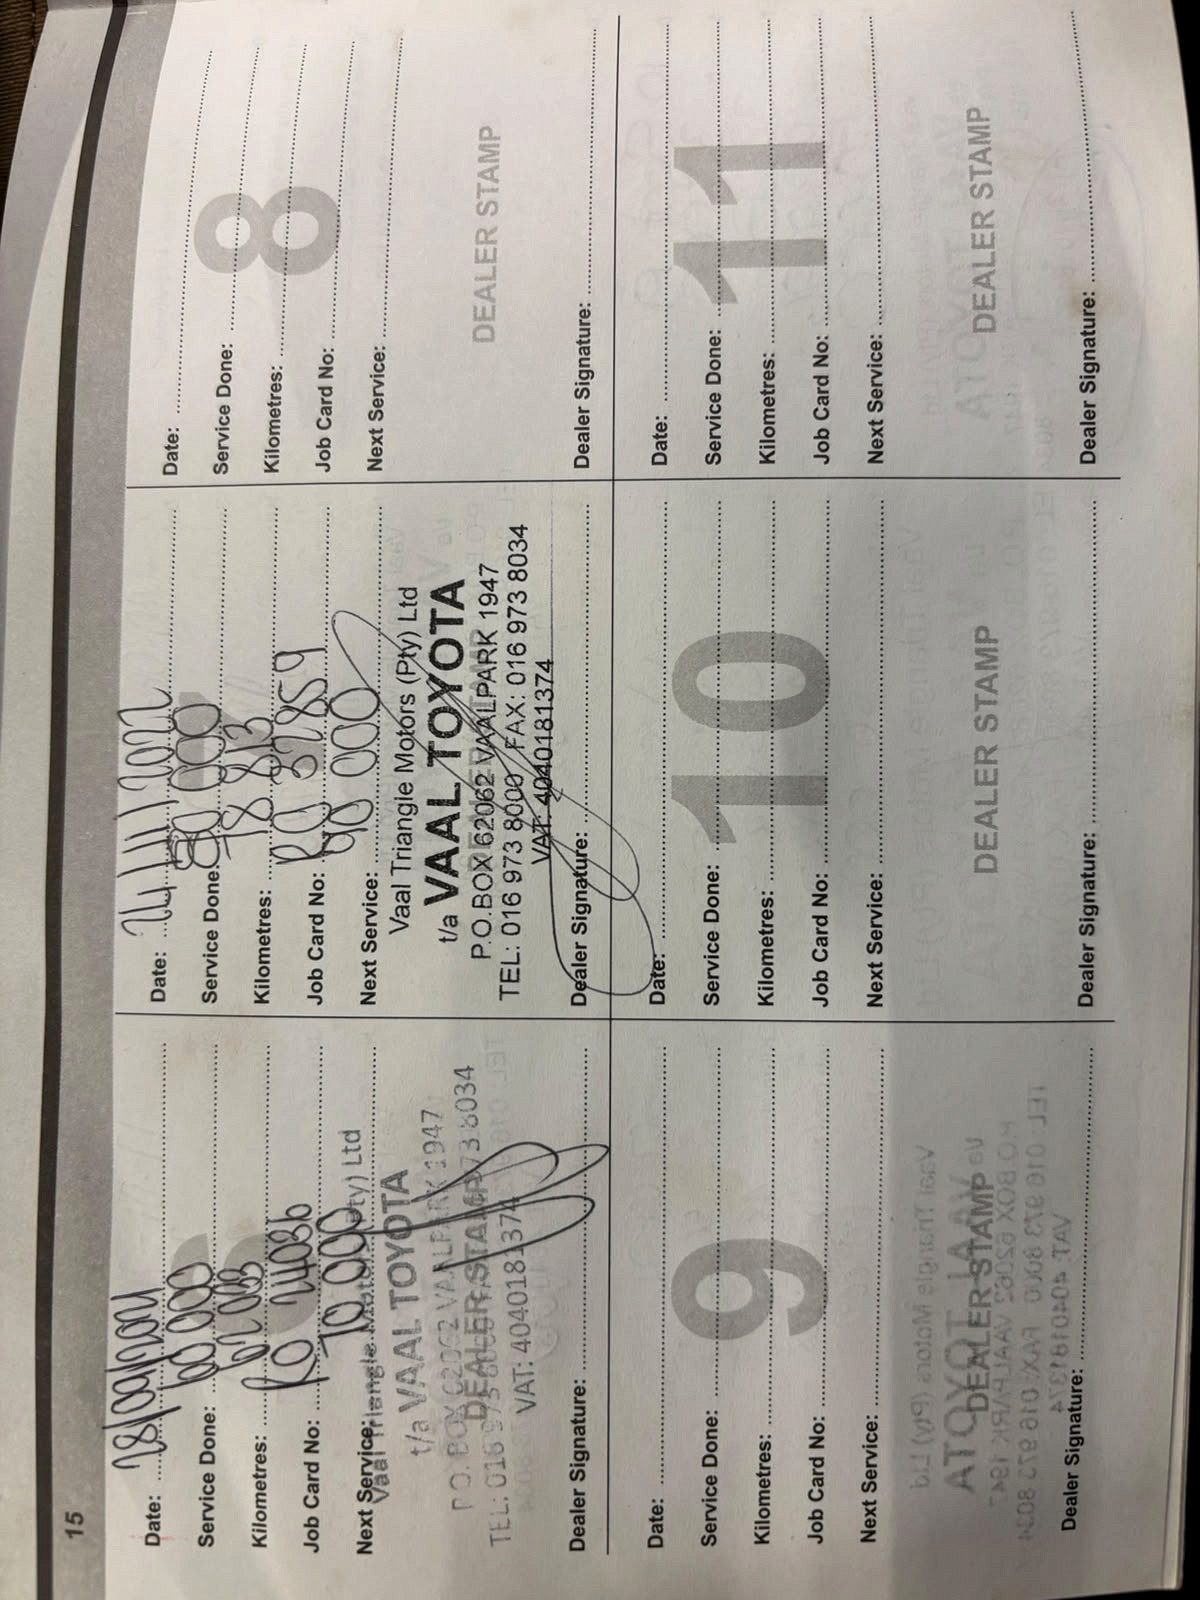 15
Date: 28/09/2021
Service Done: 60 000
Kilometres: 62 003
Job Card No: RO 24036
Next Service: 70 000
Vaal Triangle Motors (Pty) Ltd
t/a VAAL TOYOTA
P.O. BOX 62062 VAALPARK 1947
DEALER STAMP
TEL: 016 973 8000 FAX: 016 973 8034
VAT: 4040181374
Dealer Signature:
Date: 24/11/2022
Service Done: 80 000
Kilometres: 78 813
Job Card No: RO 37859
Next Service: 90 000
Vaal Triangle Motors (Pty) Ltd
t/a VAAL TOYOTA
P.O.BOX 62062 VAALPARK 1947
TEL: 016 973 8000 FAX: 016 973 8034
VAT: 4040181374
Dealer Signature:
8
Date:
Service Done:
Kilometres:
Job Card No:
Next Service:
DEALER STAMP
Dealer Signature:
9
Date:
Service Done:
Kilometres:
Job Card No:
Next Service:
DEALER STAMP
Dealer Signature:
10
Date:
Service Done:
Kilometres:
Job Card No:
Next Service:
DEALER STAMP
Dealer Signature:
11
Date:
Service Done:
Kilometres:
Job Card No:
Next Service:
DEALER STAMP
Dealer Signature: